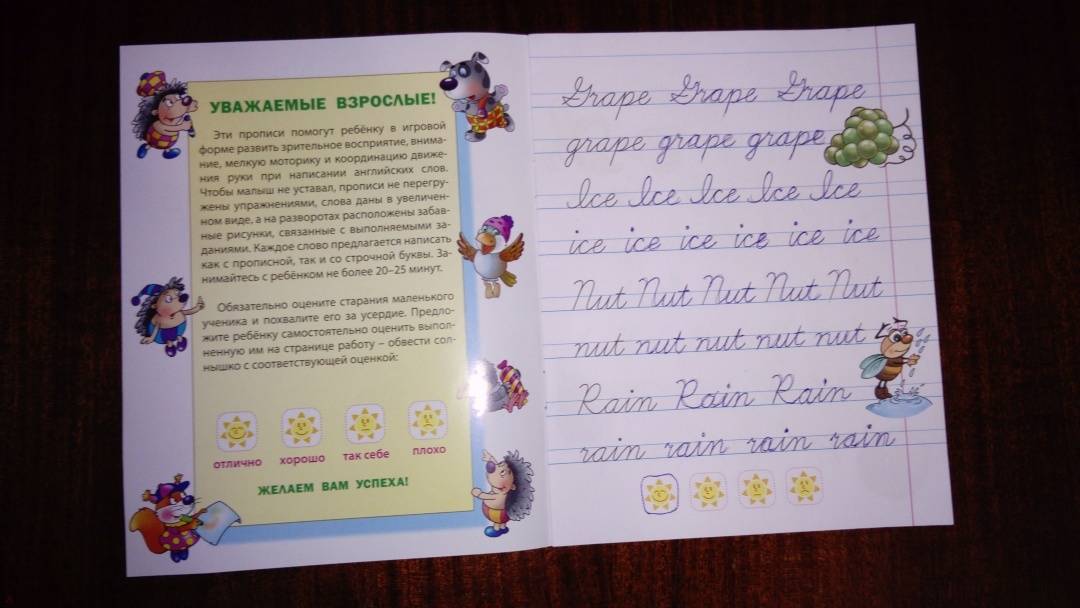 УВАЖАЕМЫЕ ВЗРОСЛЫЕ!
Эти прописи помогут ребёнку в игровой
форме развить зрительное восприятие, внима-
ние, мелкую моторику и координацию движе-
ния руки при написании английских слов.
Чтобы малыш не уставал, прописи не перегру-
жены упражнениями, слова даны в увеличен-
ном виде, а на разворотах расположены забав-
ные рисунки, связанные с выполняемыми за-
даниями. Каждое слово предлагается написать
как с прописной, так и со строчной буквы. За-
нимайтесь с ребёнком не более 20–25 минут.
Обязательно оцените старания маленького
ученика и похвалите его за усердие. Предло-
жите ребёнку самостоятельно оценить выпол-
ненную им на странице работу – обвести сол-
нышко с соответствующей оценкой:
отлично хорошо так себе плохо
ЖЕЛАЕМ ВАМ УСПЕХА!
Grape Grape Grape
grape grape grape
Ice Ice Ice Ice Ice
ice ice ice ice ice ice
Nut Nut Nut Nut Nut
nut nut nut nut nut
Rain Rain Rain
rain rain rain rain